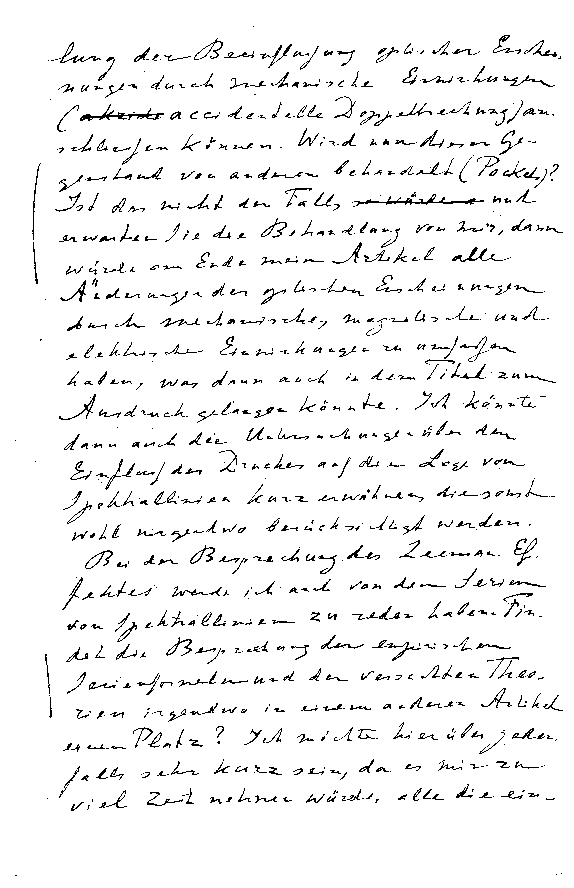 lung der Beeinflussung optischer Erschei-
nungen durch mechanische Einwirkungen
(akzide accidentelle Doppelbrechung) an-
schliessen können. Wird nun dieser Ge-
genstand von anderen behandelt (Pockels)?
Ist das nicht der Fall, so würde und
erwarten Sie die Behandlung von mir, dann
würde am Ende mein Artikel alle
Änderungen der optischen Erscheinungen
durch mechanische, magnetische und
elektrische Einwirkungen zu umfassen
haben, was dann auch in dem Titel zum
Ausdruck gelangen könnte. Ich könnte
dann auch die Untersuchungen über den
Einfluss des Druckes auf die Lage von
Spektrallinien kurz erwähnen, die sonst
wohl nirgendwo berücksichtigt werden.
Bei der Besprechung des Zeeman-Ef-
fektes werde ich auch von den Serien
von Spektrallinien zu reden haben. Fin-
det die Besprechung der empirischen
Serienformeln und der versuchten Theo-
rien irgendwo in einem anderen Artikel
einen Platz? Ich möchte hierüber jeden-
falls sehr kurz sein, da es mir zu
viel Zeit nehmen würde, alle die ein-